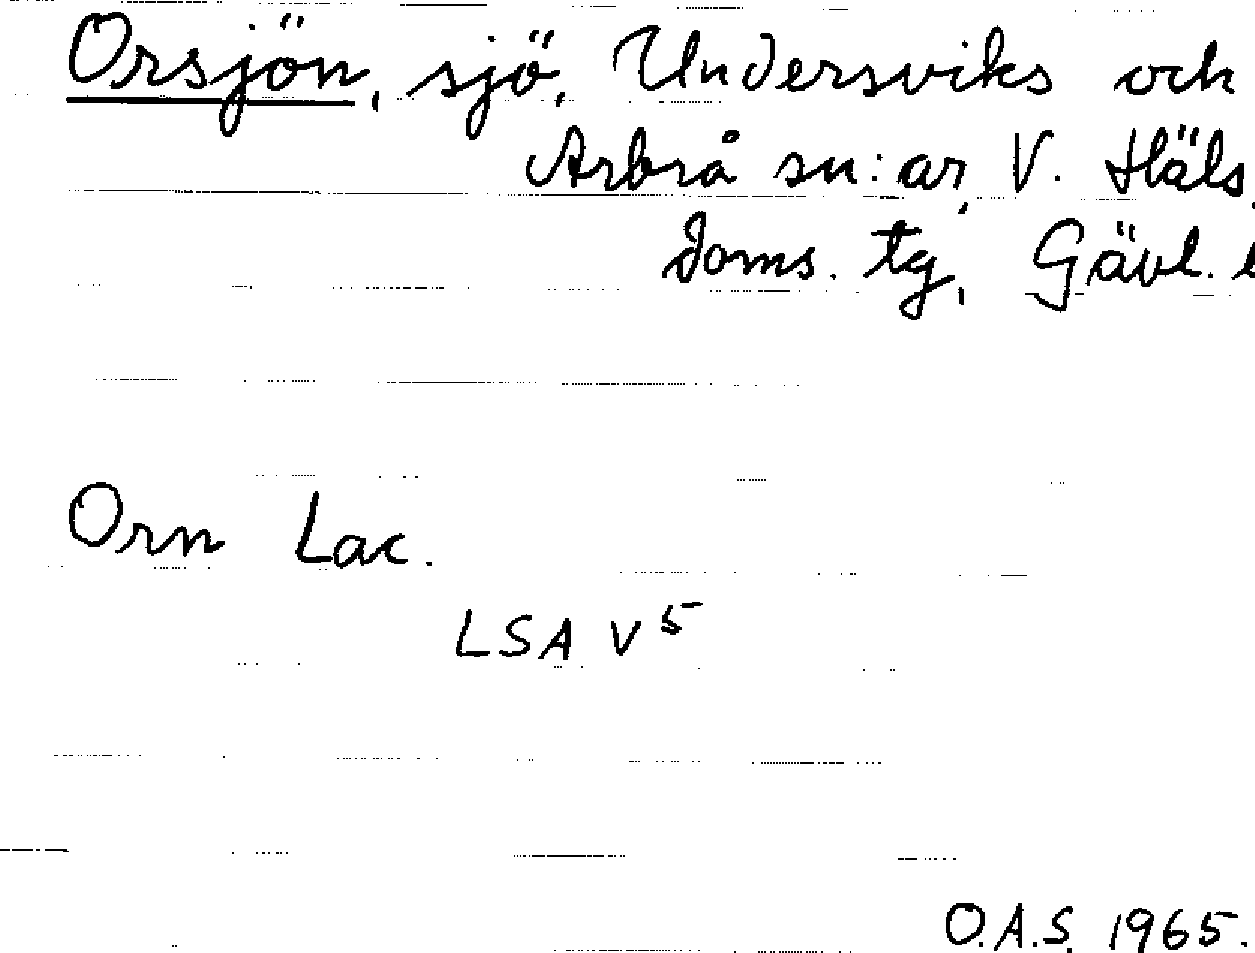 Orsjön, sjö, Undersviks och
Arbrå sn:ar, V. Häls.
doms. tg, Gävl. l
Orn Lac.
LSA V 5
O.A.S. 1965.